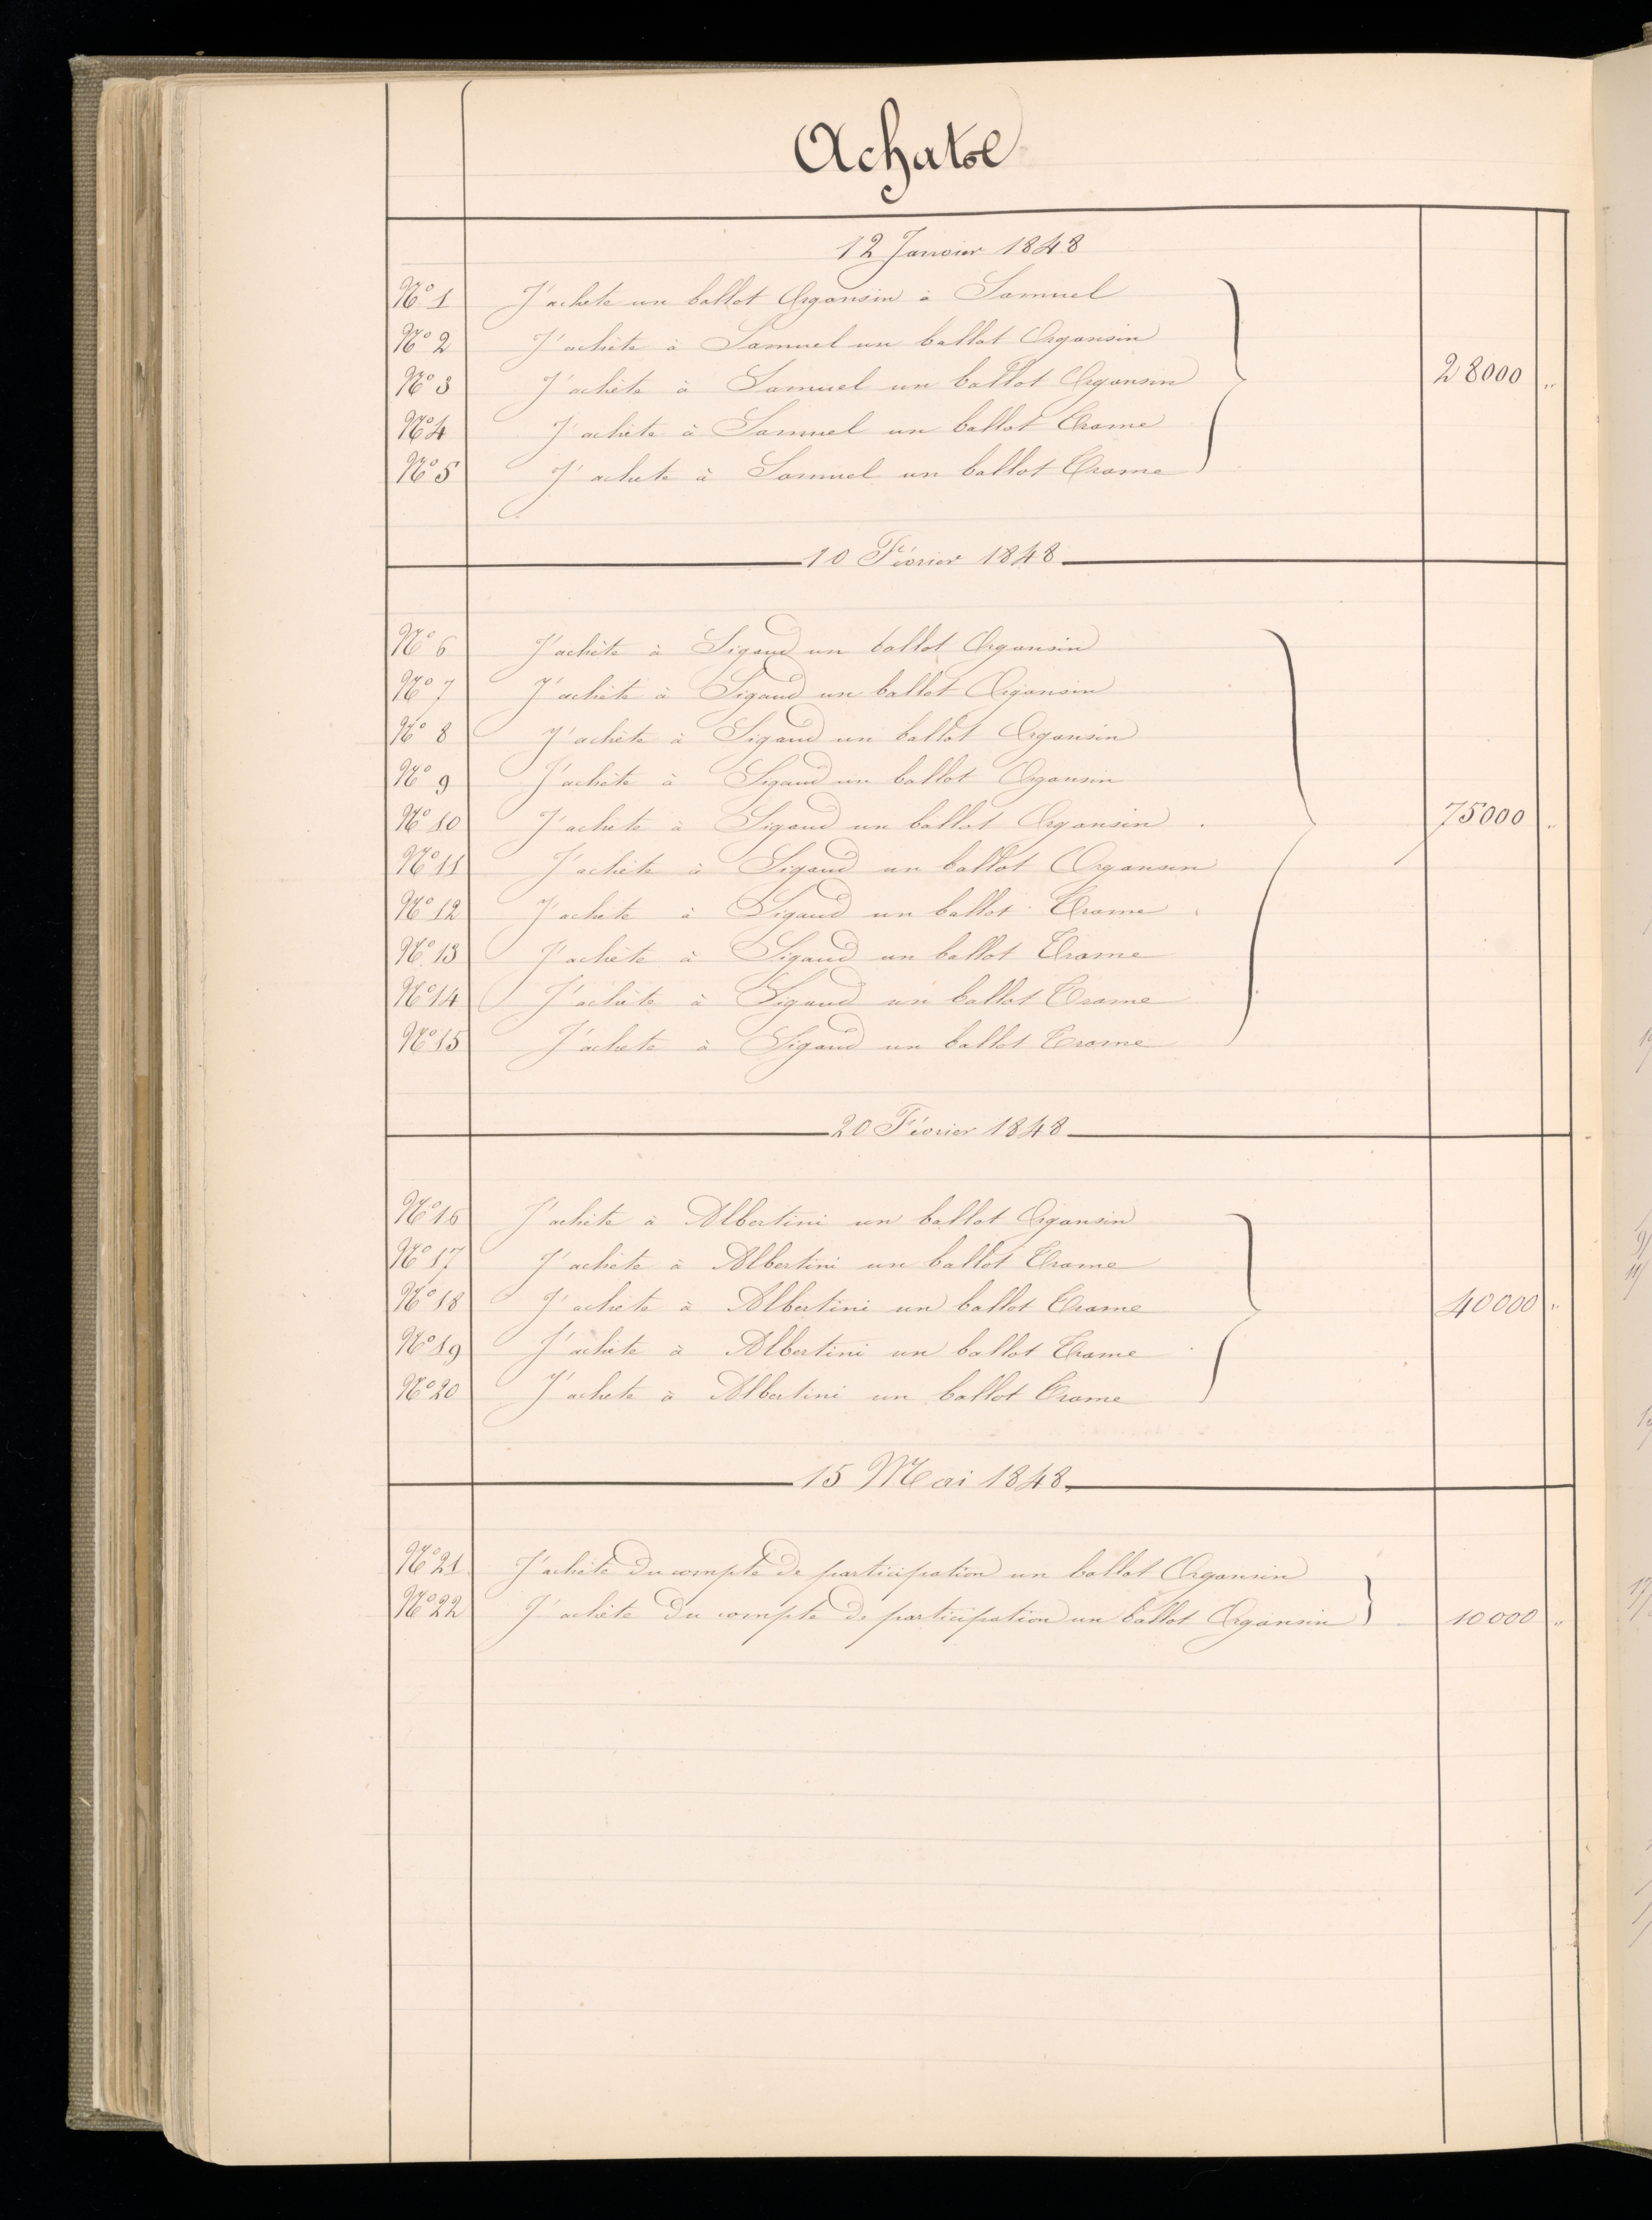 Achats
12 Janvier 1848
N° 1 J'achète un ballot Organsin à Samuel
N° 2 J'achète à Samuel un ballot Organsin
N° 3 J'achète à Samuel un ballot Organsin 28000 "
N° 4 J'achète à Samuel un ballot Trame
N° 5 J'achète à Samuel un ballot Trame
10 Février 1848
N° 6 J'achète à Sigaud un ballot Organsin
N° 7 J'achète à Sigaud un ballot Organsin
N° 8 J'achète à Sigaud un ballot Organsin
N° 9 J'achète à Sigaud un ballot Organsin
N° 10 J'achète à Sigaud un ballot Organsin 75000 "
N° 11 J'achète à Sigaud un ballot Organsin
N° 12 J'achète à Sigaud un ballot Trame
N° 13 J'achète à Sigaud un ballot Trame
N° 14 J'achète à Sigaud un ballot Trame
N° 15 J'achète à Sigaud un ballot Trame
20 Février 1848
N° 16 J'achète à Albertini un ballot Organsin
N° 17 J'achète à Albertini un ballot Trame
N° 18 J'achète à Albertini un ballot Trame 40000 "
N° 19 J'achète à Albertini un ballot Trame
N° 20 J'achète à Albertini un ballot Trame
15 Mai 1848
N° 21 J'achète du compte de participation un ballot Organsin
N° 22 J'achète du compte de participation un ballot Organsin 10000 "